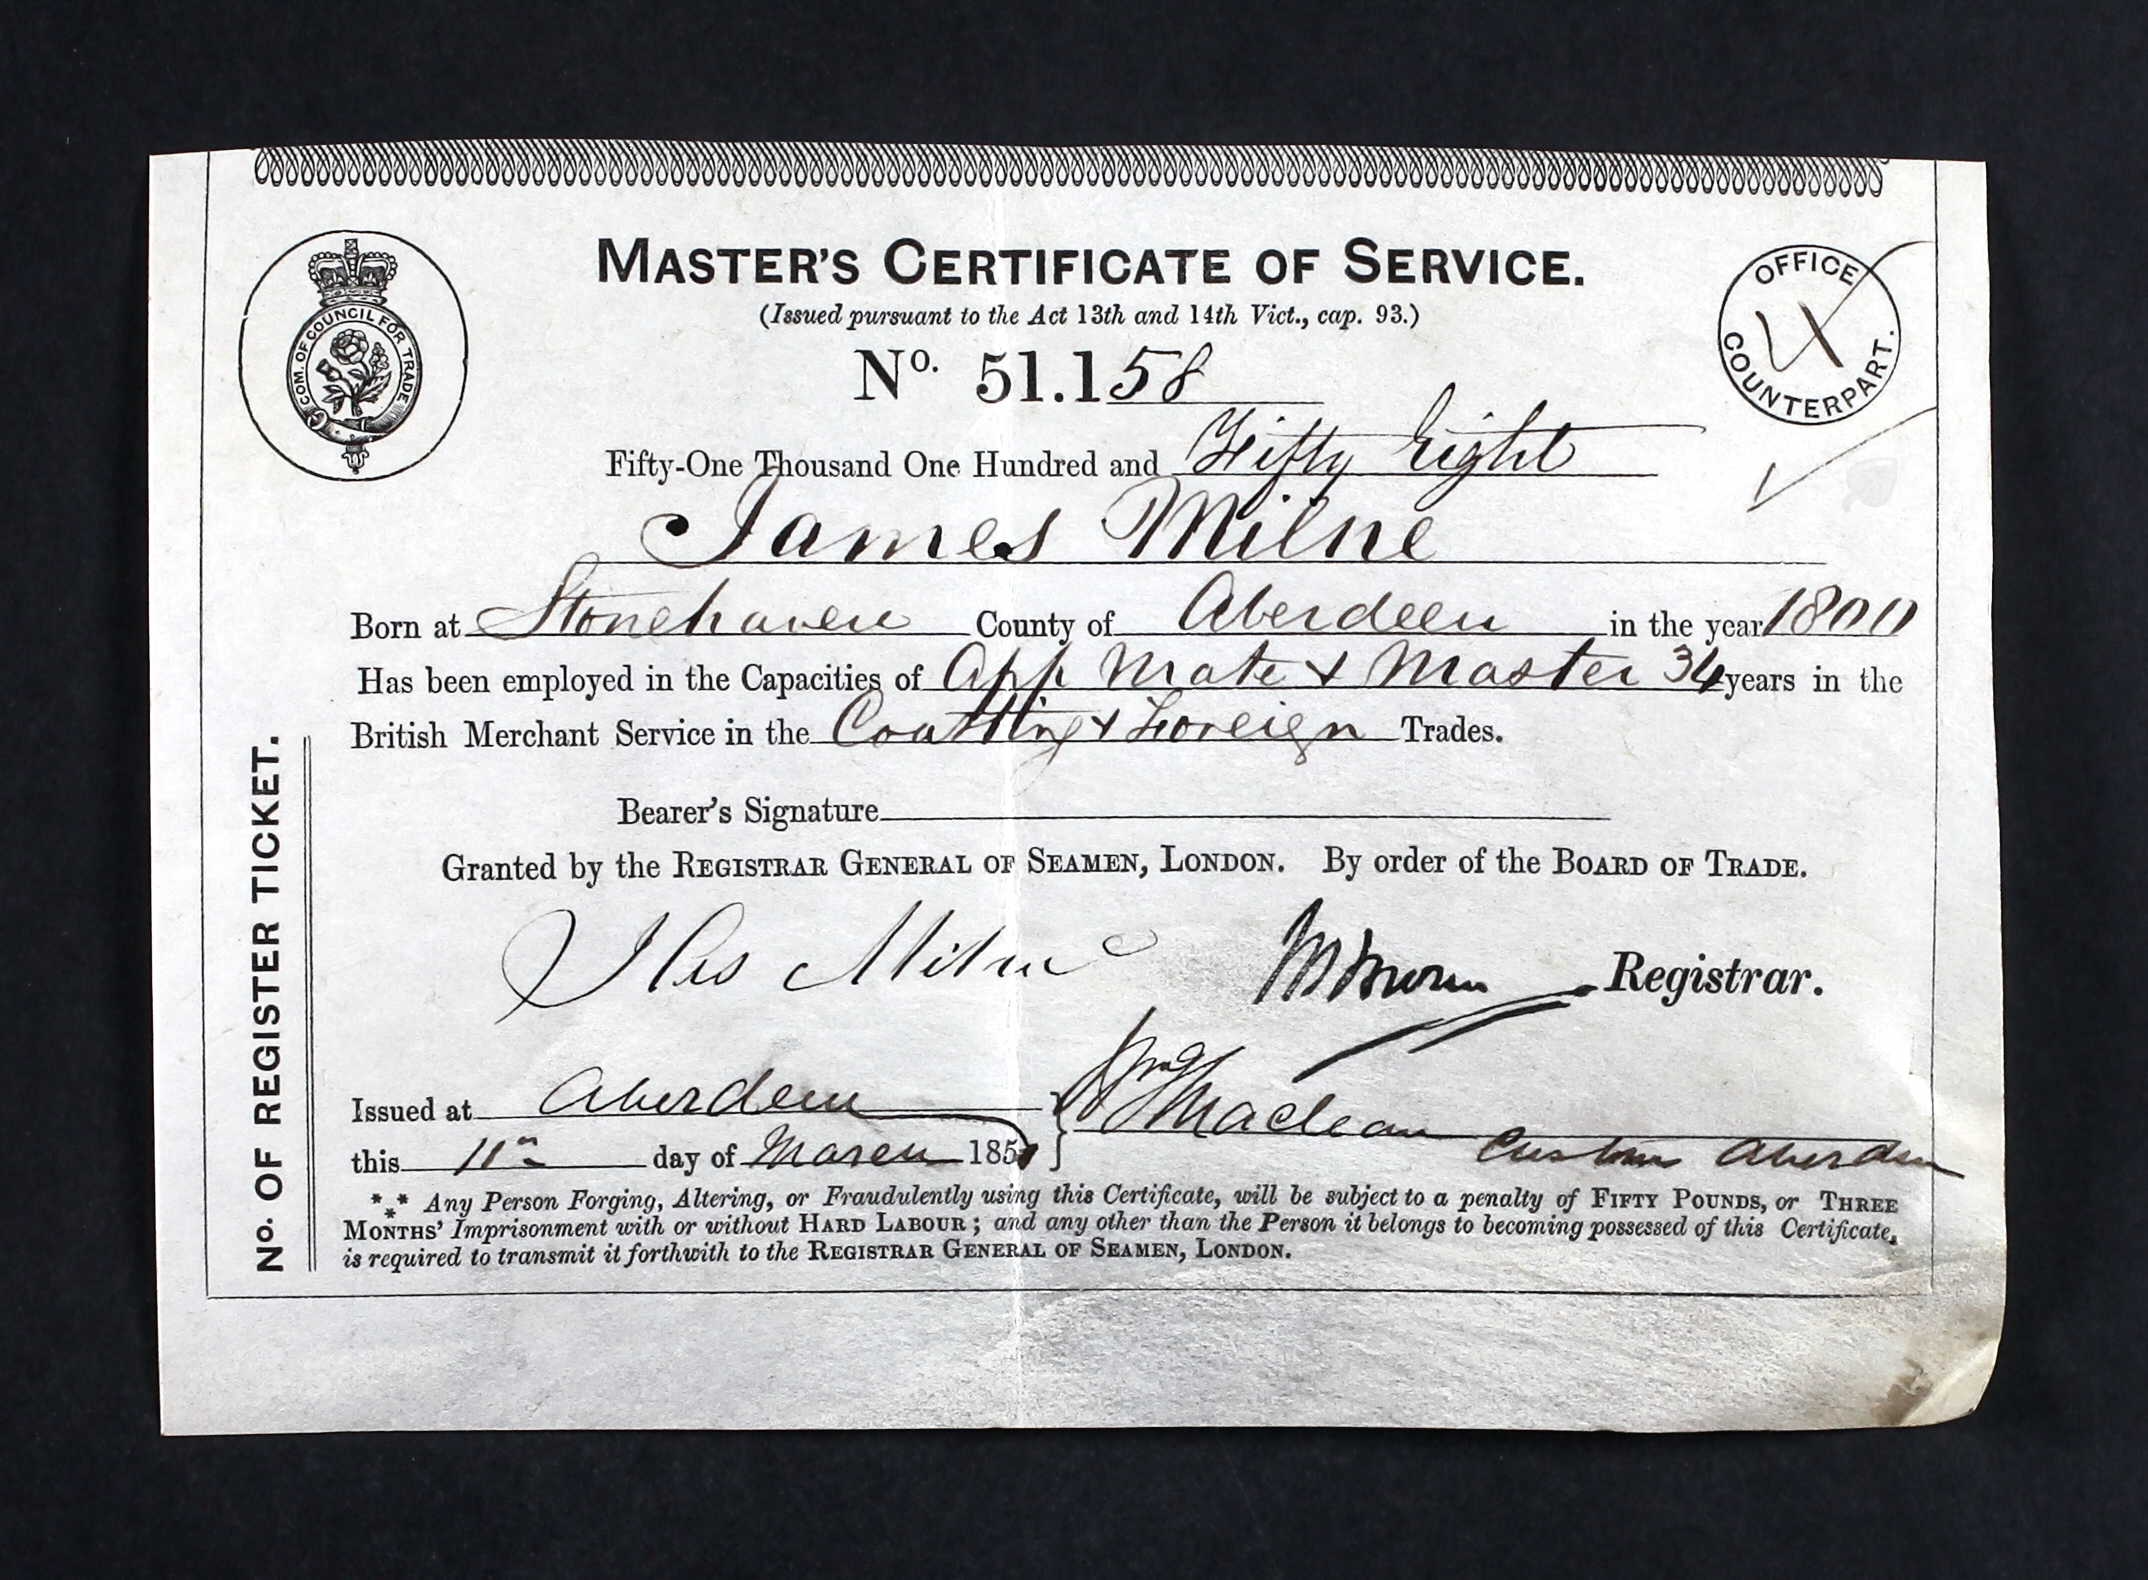 MASTER'S CERTIFICATE OF SERVICE.
(Issued pursuant to the Act 13th and 14th Vict., cap. 93.)
COM. OF COUNCIL FOR TRADE
OFFICE
COUNTERPART.
No. 51.158
Fifty-One Thousand One Hundred and Fifty Eight
James Milne
Born at Stonehaven County of Aberdeen in the year 1800
Has been employed in the Capacities of App Mate & Master 34 years in the
British Merchant Service in the Coasting & Foreign Trades.
Bearer's Signature
Granted by the REGISTRAR GENERAL OF SEAMEN, LONDON. By order of the BOARD OF TRADE.
Jas Milne
Registrar.
Issued at Aberdeen
Maclean
Customs Aberdeen
this 11th day of March 1851
*** Any Person Forging, Altering, or Fraudulently using this Certificate, will be subject to a penalty of FIFTY POUNDS, or THREE
MONTHS' Imprisonment with or without HARD LABOUR; and any other than the Person it belongs to becoming possessed of this Certificate,
is required to transmit it forthwith to the REGISTRAR GENERAL OF SEAMEN, LONDON.
No. OF REGISTER TICKET.